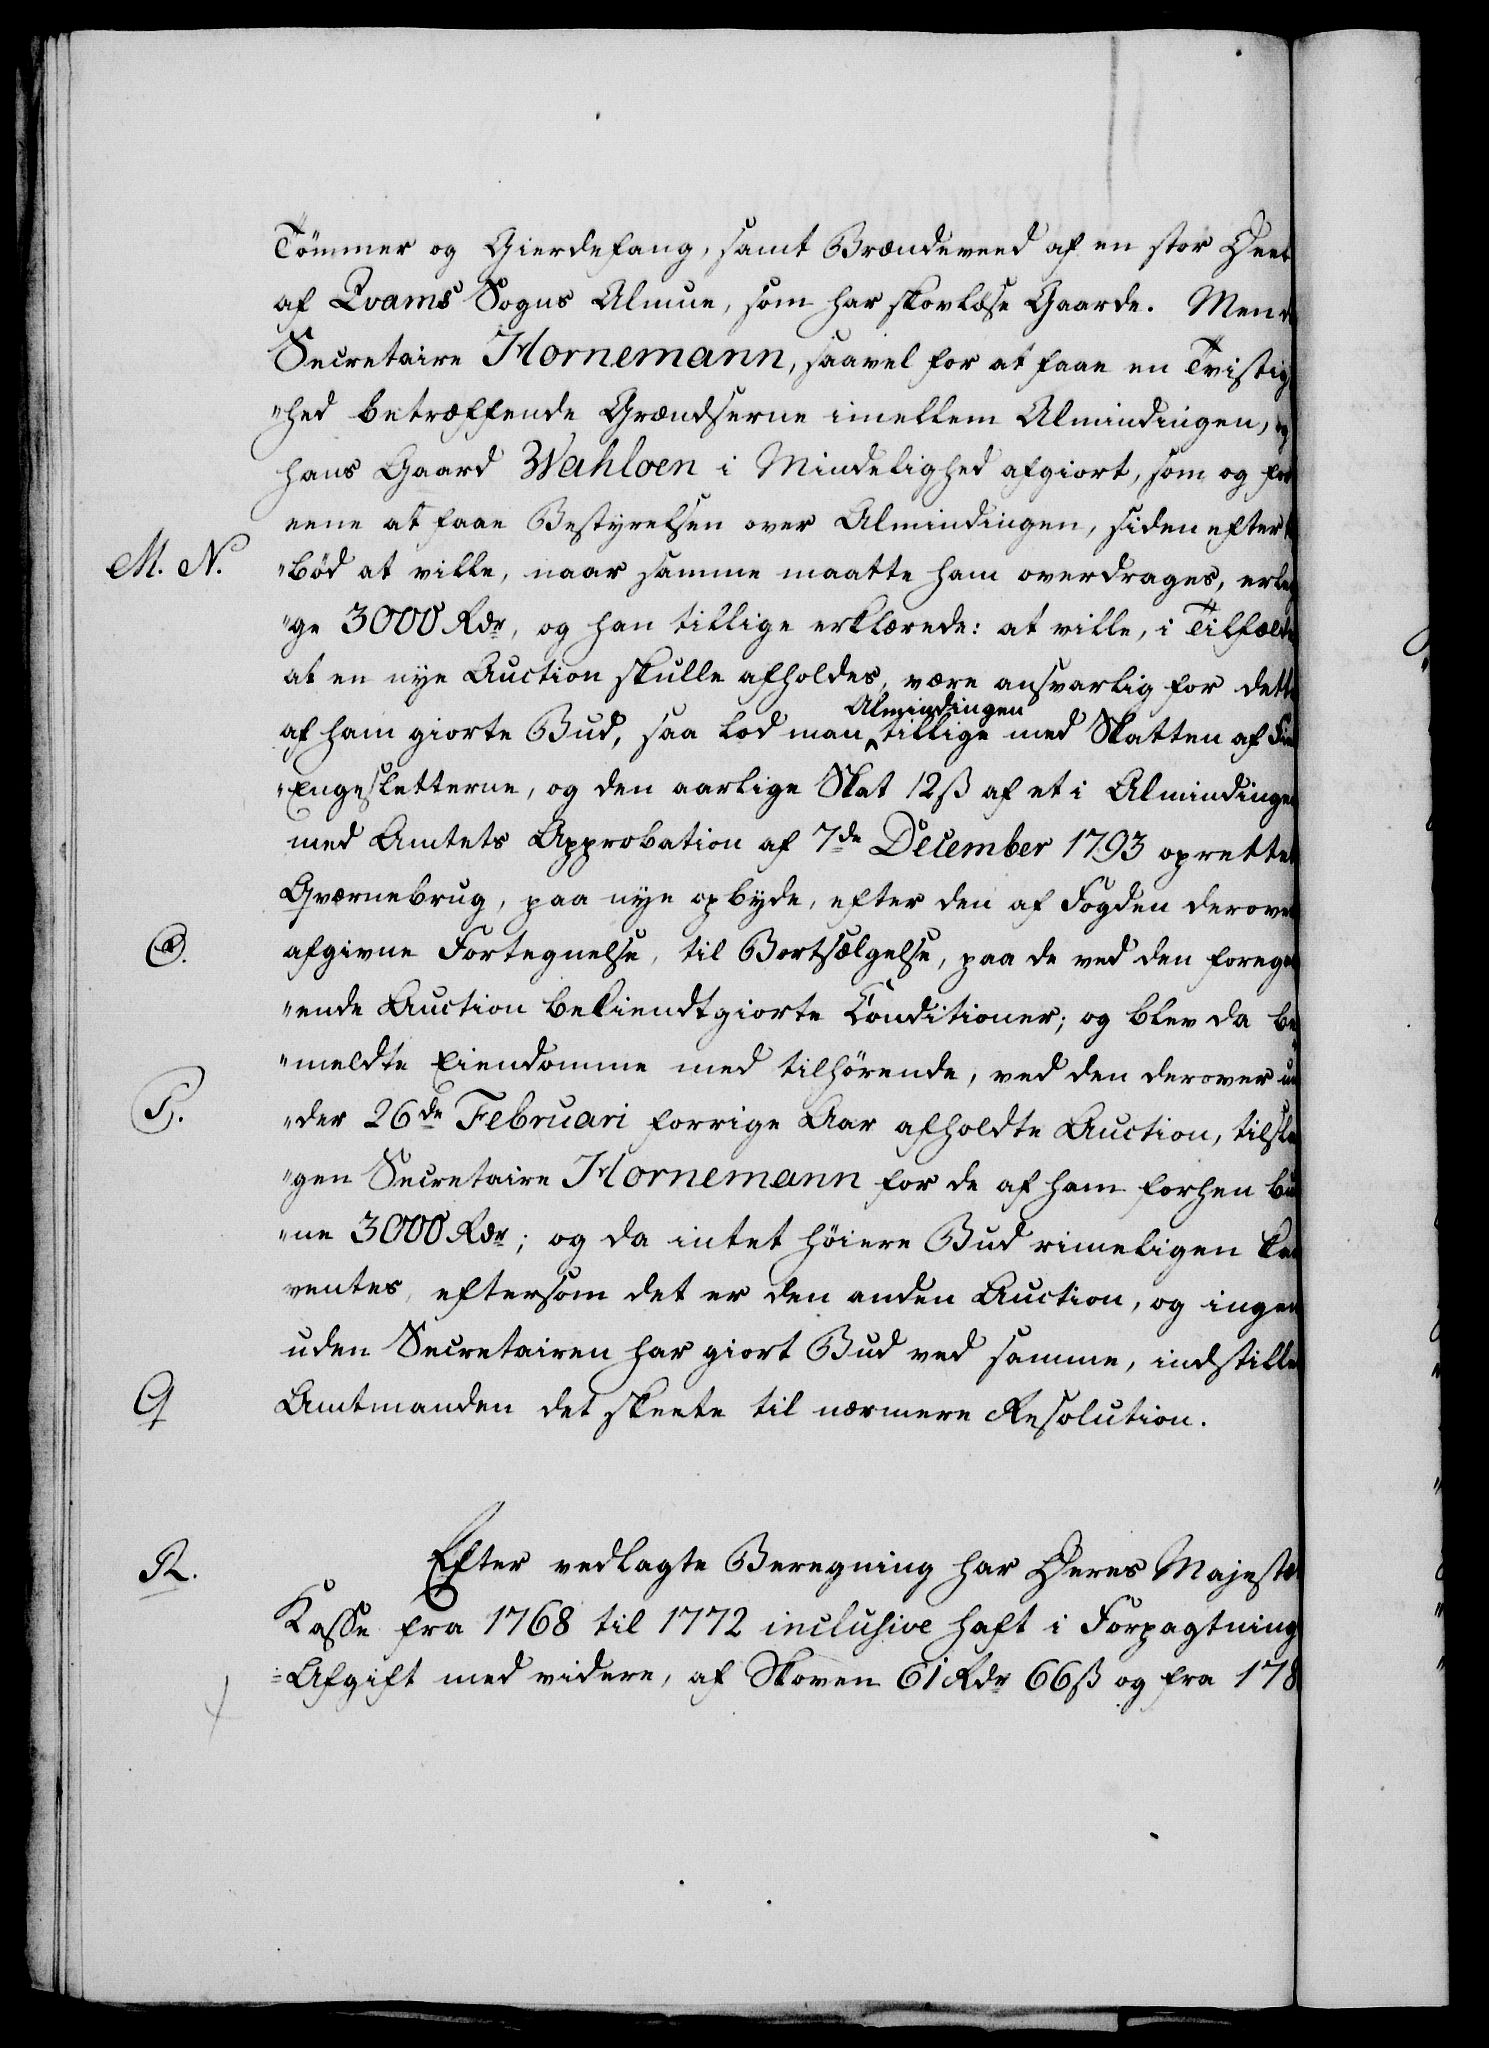 Tömmer og Gierdefang, samt Brændeveed af en stor Deel
af Qvams Sogns Almue, som har skovløse Gaarde. Men da
Secretaire Hornemann, saavel for at faae en Tvistig
"hed betræffende Grændserne imellem Almindingen, og
hans Gaard Wahloen i Mindelighed afgiort, som og for
eene at faae Bestyrelsen over Almindingen, siden efter
M. N. "böd at ville, naar samme maatte ham overdrages, erleg
"ge 3000 Rdr, og han tillige erklærede: at ville, i Tilfælde
at en nye Auction skulle afholdes, være ansvarlig for dette
Almindingen
af ham giorte Bud, saa lod man ‸ tillige med Skatten af
"Engesletterne, og den aarlige Skat 12ß af et i Almindingen
med Amtets Approbation af 7de December 1793 oprettet
Qværnebrug, paa nye opbyde, efter den af Fogden derover
O. afgivne Fortegnelse, til Bortsælgelse, paa de ved den foregaa
"ende Auction bekiendtgiorte Conditioner; og blev da be
"meldte Eiendomme med tilhörende, ved den derover un
P. "der 26de Februari forrige Aar afholdte Auction, tilsla
"gen Secretaire Hornemann for de af ham forhen bud
"ne 3000 Rdr; og da intet höiere Bud rimeligen kan
ventes, eftersom det er den anden Auction, og ingen
uden Secretairen har giort Bud ved samme, indstiller
Q Amtmanden det skeete til nærmere Resolution.
R. Efter vedlagte Beregning har Deres Majestæts
Kasse fra 1768 til 1772 inclusive haft i Forpagtning
=Afgift med videre, af Skoven 61 Rdr 66ß og fra 178